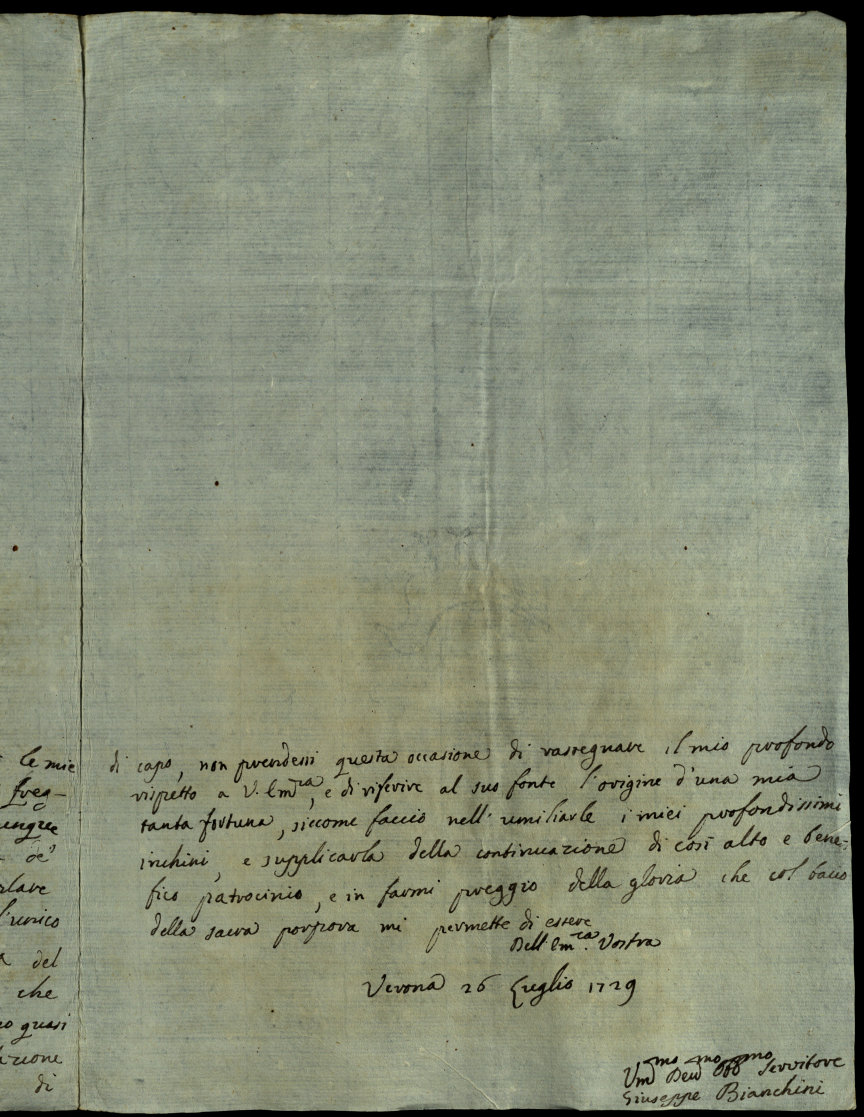 le mie
freg-
unque
- de'
rlare
l'unico
del
che
quasi
zione
di
di capo, non prendessi questa occasione di rassegnare il mio profondo
rispetto a V. Em.za, e di riferire al suo fonte l'origine d'una mia
tanta fortuna, siccome faccio nell'umiliarle i miei profondissimi
inchini, e supplicarla della continuazione di così alto e bene-
fico patrocinio, e in farmi preggio della gloria che col bacio
della sacra porpora mi permette di essere
Dell'Em.za Vostra
Verona 26 Luglio 1729
Um.mo Dev.mo Obb.mo Servitore
Giuseppe Bianchini